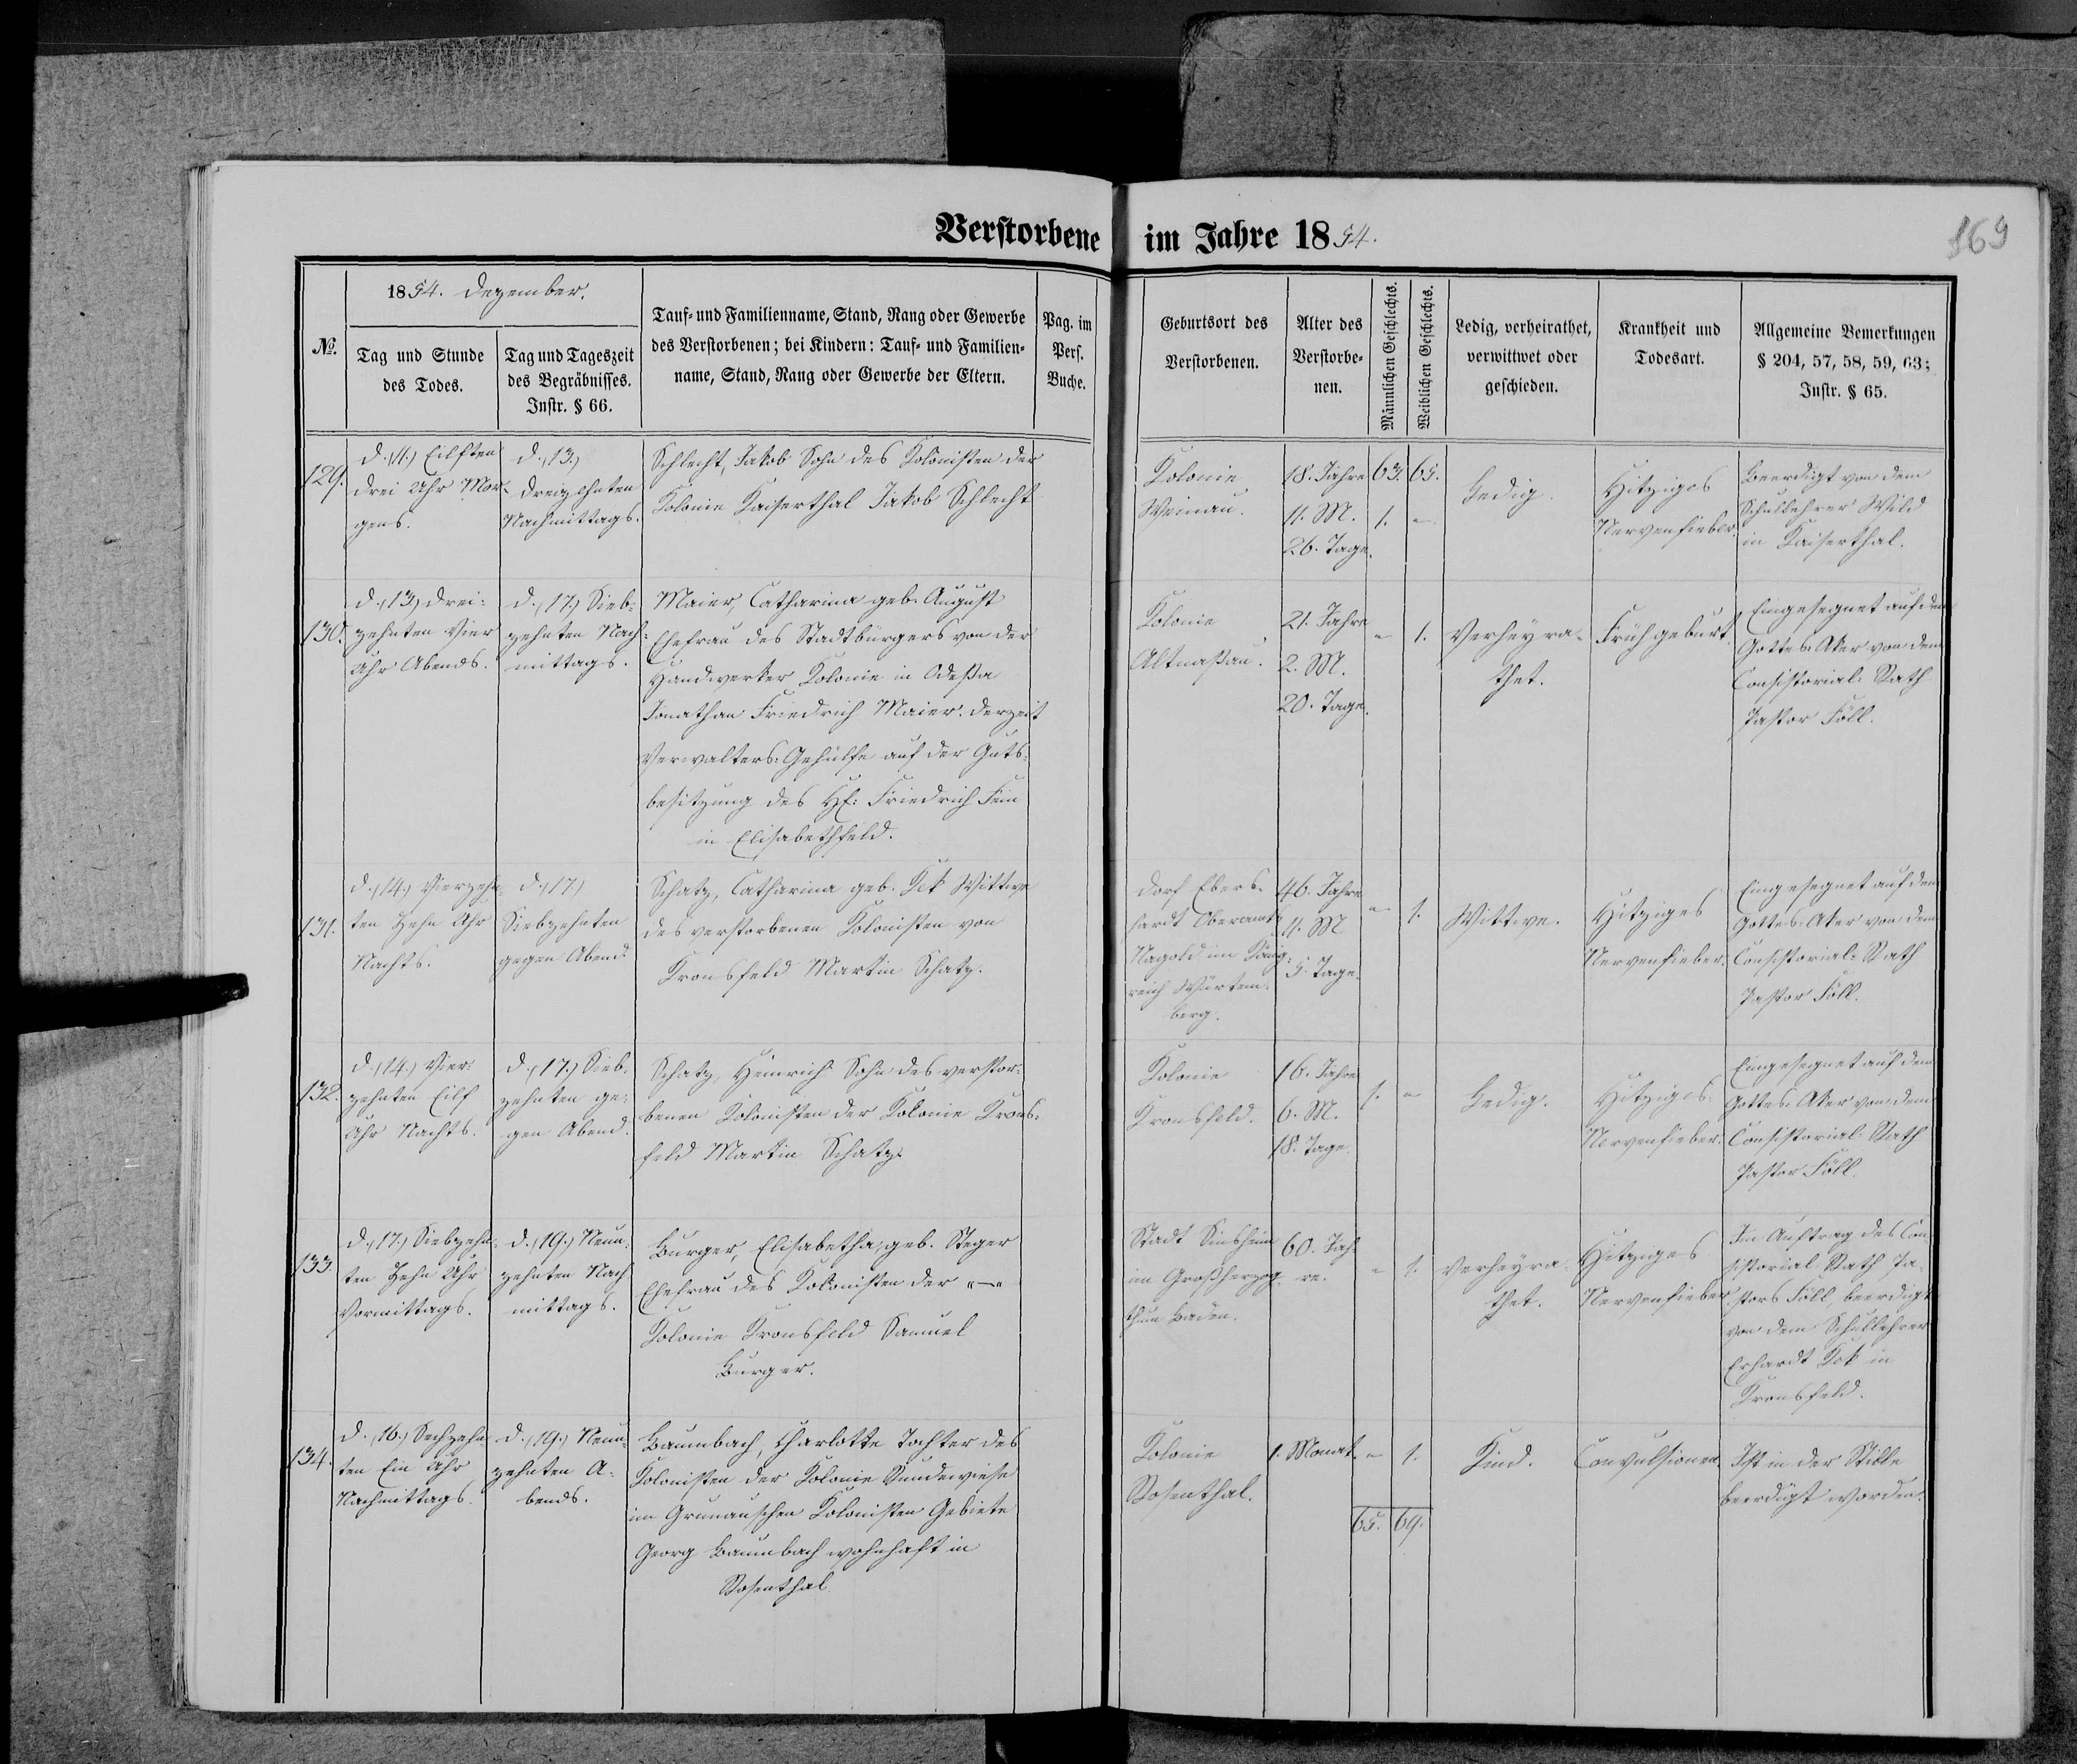 Verstorbene im Jahre 1854.
169
№.
1854. Dezember.
Tag und Stunde
des Todes.
Tag und Tageszeit
des Begräbnisses.
Instr. § 66.
Tauf- und Familienname, Stand, Rang oder Gewerbe
des Verstorbenen; bei Kindern: Tauf- und Familien-
name, Stand, Rang oder Gewerbe der Eltern.
Pag. im
Pers.
Buche.
Geburtsort des
Verstorbenen.
Alter des
Verstorbe-
nen.
Männlichen Geschlechts.
Weiblichen Geschlechts.
Ledig, verheirathet,
verwittwet oder
geschieden.
Krankheit und
Todesart.
Allgemeine Bemerkungen
§ 204, 57, 58, 59, 63;
Instr. § 65.
129.
d. (11.) Eilften
drei Uhr Mor-
gens.
d. (13.)
dreizehnten
Nachmittags.
Schlecht, Jakob Sohn des Kolonisten der
Kolonie Kaiserthal Jakob Schlecht
Kolonie
Weinau.
18. Jahre
11. M.
26. Tage.
63. 65.
1. "
Ledig.
Hitziges
Nervenfieber.
Beerdigt von dem
Schullehrer Wild
in Kaiserthal.
130.
d. (13.) drei-
zehnten Vier
Uhr Abends.
d. (17.) Sieb-
zehnten Nach-
mittags.
Maier, Catharina geb. August
Ehefrau des Stadtbürgers von der
Handwerker Kolonie in Odeßa
Jonathan Friedrich Maier. derzeit
Verwalters-Gehülfe auf der Guts-
besitzung des H: Friedrich Fein
in Elisabethfeld.
Kolonie
Altnaßau.
21. Jahre
2. M.
20. Tage.
" 1.
Verheyra-
thet.
Frühgeburt.
Eingesegnet auf dem
Gottes-Aker von dem
Consistorial-Rath
Pastor Föll.
131.
d. (14.) Vierzehn-
ten Zehn Uhr
Nachts.
d. (17.)
Siebzehnten
gegen Abend.
Schatz, Catharina geb. Kek Wittwe
des verstorbenen Kolonisten von
Kronsfeld Martin Schatz.
Dorf Ebers-
hardt Oberamts
Nagold im König-
reich Würtem-
berg.
46. Jahre
11. M
5. Tage.
" 1.
Wittwe.
Hitziges
Nervenfieber.
Eingesegnet auf dem
Gottes-Aker von dem
Consistorial-Rath
Pastor Föll.
132.
d. (14.) Vier-
zehnten Eilf
Uhr Nachts.
d. (17.) Sieb-
zehnten ge-
gen Abend.
Schatz, Heinrich Sohn des verstor-
benen Kolonisten der Kolonie Krons-
feld Martin Schatz.
Kolonie
Kronsfeld.
16. Jahre
6. M.
18. Tage.
1. "
Ledig.
Hitziges
Nervenfieber.
Eingesegnet auf dem
Gottes-Aker von dem
Consistorial-Rath
Pastor Föll.
133.
d. (17.) Siebzehn-
ten Zehn Uhr
Vormittags.
d. (19.) Neun-
zehnten Nach
mittags.
Burger, Elisabetha, geb. Steger
Ehefrau des Kolonisten der "—"
Kolonie Kronsfeld Samuel
Burger.
Stadt Sinsheim
im Großherzog-
thum Baden.
60. Jah-
re.
" 1.
Verheyra-
thet.
Hitziges
Nervenfieber
Im Auftrag des Con-
sistorial-Rath Pa-
stors Föll, beerdigt
von dem Schullehrer
Erhardt Kek in
Kronsfeld.
134.
d. (16.) Sechzehn-
ten Ein Uhr
Nachmittags.
d. (19.) Neun-
zehnten A-
bends.
Baumbach, Charlotte Tochter des
Kolonisten der Kolonie Tundewiese
im Grunauschen Kolonisten Gebiete
Georg Baumbach wohnhaft in
Rosenthal.
Kolonie
Rosenthal.
1. Monat.
" 1.
Kind.
Convulsionen.
Ist in der Stille
beerdigt worden.
65. 69.